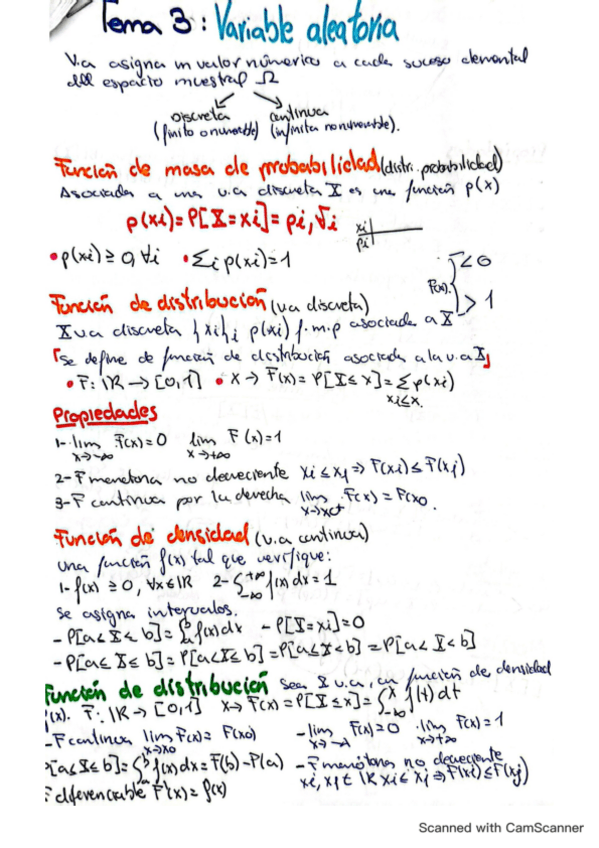 Tema 3: Variable aleatoria
V.a asigna un valor númerico a cada suceso elemental
del espacio muestral Ω
Discreta continua
(finito o numerable) (infinita no numerable).
Función de masa de probabilidad (distri. probabilidad)
Asociada a una v.a discreta X es una función p(x)
p(xi)=P[X=xi]=pi, ∀i
xi
pi
• p(xi) ≥ 0, ∀i • Σi p(xi)=1
F(x) { < 0
> 1
Función de distribución (v.a discreta)
X v.a discreta {xi}i p(xi) f.m.p asociada a X
「Se define de función de distribución asociada a la v.a X」
• F: IR → [0,1] • x → F(x) = P[X≤x] = Σ p(xi)
xi≤x
Propiedades
1- lim F(x)=0 lim F(x)=1
x→-∞ x→+∞
2- F monotona no decreciente xi ≤ xj ⇒ F(xi) ≤ F(xj)
3- F continua por la derecha lim F(x) = F(x0).
Función de densidad (v.a continua)
Una función f(x) tal que verifique:
1- f(x) ≥ 0, ∀x∈IR 2- ∫-∞+∞ f(x)dx = 1
Se asigna intervalos.
- P[a<X<b] = ∫ f(x)dx - P[X=xi]=0
- P[a≤X≤b] = P[a<X≤b] = P[a≤X<b] = P[a<X<b]
Función de distribución Sea X v.a, con función de densidad
f(x). F: IR → [0,1] x → F(x) = P[X≤x] = ∫-∞x f(t)dt
- F continua lim F(x) = F(x0) - lim F(x)=0 · lim F(x)=1
x→x0 x→-∞ x→+∞
P[a≤X≤b] = ∫ab f(x)dx = F(b) - F(a) - F monótona no decreciente
xi, xj ∈ IR xi ≤ xj ⇒ F(xi) ≤ F(xj)
F diferenciable F'(x) = f(x)
Scanned with CamScanner